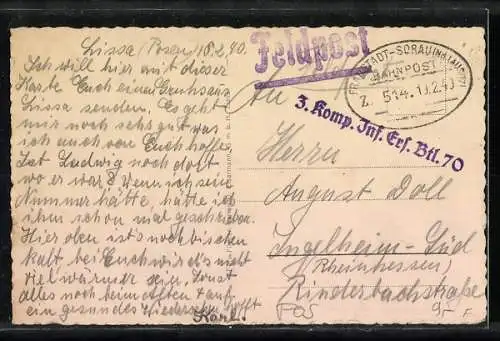 Lissa (Posen) 18.2.40.
Ich will hier mit dieser
Karte Euch einen Gruß aus
Lissa senden. Es geht
mir noch sehr gut was
ich auch von Euch hoffe.
Ist Ludwig noch dort
wo er war? Wenn ich seine
Nummer hätte, hätte ich
ihm schon mal geschrieben.
Hier oben ist's noch bischen
kalt bei Euch wird's nicht
viel wärmer sein. Sonst
alles noch beim Alten & auf
ein gesundes Wiedersehen hofft
Karl.
Feldpost
BAHNPOST
Z. 514
3. Komp. Inf. Ers. Btl. 70
An
Herrn
August Doll
Ingelheim-Süd
(Rheinhessen)
Rinderbachstraße